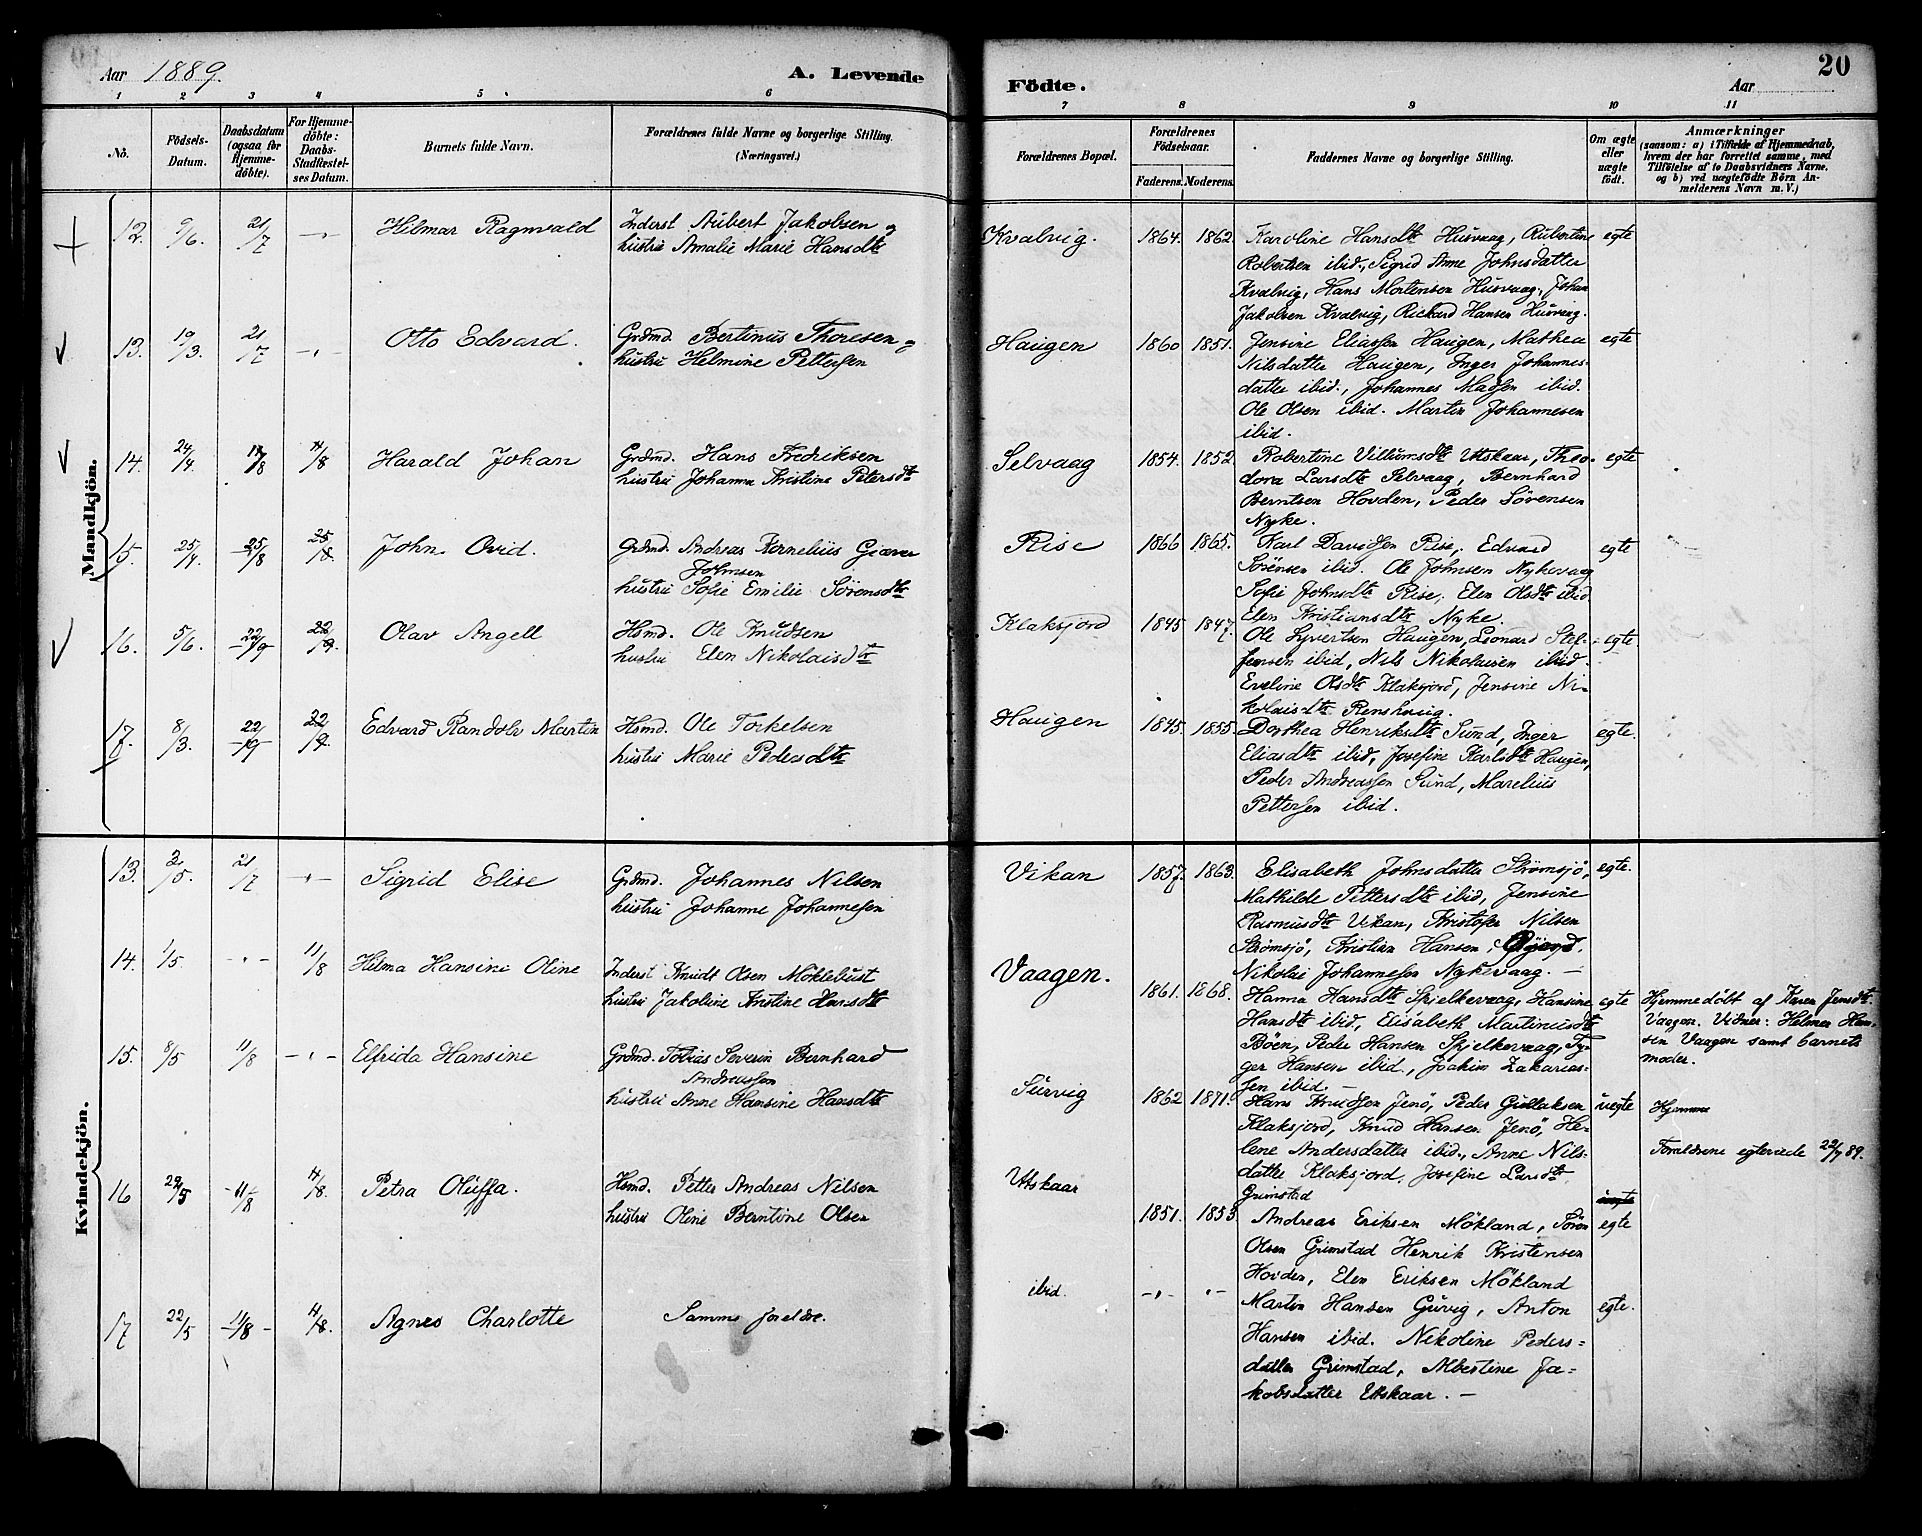 Aar 1889.
A. Levende
Födte.
Aar
20
1 2 3 4 5 6 7 8 9 10 11
No.
Födsels-Datum.
Daabsdatum (ogsaa for Hjemmedöbte).
For Hjemmedöbte: Daabs-Stadfæstelses Datum.
Barnets fulde Navn.
Forældrenes fulde Navne og borgerlige Stilling.
(Næringsvei.)
Forældrenes Bopæl.
Forældrenes Födselsaar.
Faderens. Moderens.
Faddernes Navne og borgerlige Stilling.
Om ægte eller uægte födt.
Anmærkninger
(saasom: a) i Tilfælde af Hjemmedaab,
hvem der har forrettet samme, med
Tilföielse af to Daabsvidners Navne,
og b) ved uægtefödte Börn Anmelderens Navn m. V.)
Mandkjön.
12. 9/6. 21/7 -"- Hilmar Ragnvald
Inderst Aubert Jakobsen og
hustru Amalie Marie Hansdtr
Kvalvig. 1864. 1862.
Karoline Hansdtr Husvaag, Rubertine
Robertsen ibid., Sigrid Anne Johnsdatter
Kvalvig, Hans Mortensen Husvaag, Johan
Jakobsen Kvalvig, Rickard Hansen Husvaag.
egte
13. 19/3. 21/7 -"- Otto Edvard.
Grdmd. Bertinus Thoresen og
hustru Helmine Pettersen
Haugen 1860 1851.
Jensine Eliassen Haugen, Mathea
Nilsdatter Haugen, Inger Johannes-
datter ibid., Johannes Madsen ibid.
Ole Olsen ibid. Martin Johannesen
ibid.
egte
14. 24/4. 11/8 11/8 Harald Johan
Grdmd. Hans Fredriksen
hustru Johanna Kristine Petersdtr
Selvaag 1854. 1852
Robertine Villumsdtr Utskaar, Theo-
dora Larsdtr Selvaag, Bernhard
Berntsen Hovden, Peder Sörensen
Nyke.
egte
15. 25/4. 25/8 John Ovid.
Grdmd. Andreas Kornelius Giæver
Johnsen
hustru Sofie Emilie Sörensdtr
Rise 1866 1865.
Karl Davidsen Rise, Edvard
Sörensen ibid. Ole Johnsen Nykevaag
Sofie Johnsdtr Rise, Elen Olsdtr ibid
Elen Kristiansdtr Nyke.
egte
16. 5/6. 22/9 22/9. Olav Angell
Hsmd. Ole Knudsen
hustru Elen Nikolaisdtr
Klaksjord 1845 1847.
Ole Syvertsen Haugen, Leonard Stef-
fensen ibid, Nils Nikolaisen ibid.
Eveline Olsdtr Klaksjord, Jensine Ni-
kolaisdtr Renshaug.
egte
17. 8/3. 22/9 22/9. Edvard Randolv Martin
Hsmd. Ole Torkelsen
hustru Marie Pedersdtr
Haugen 1845. 1855.
Dorthea Henriksdtr Sund, Inger
Eliasdtr ibid, Josefine Karlsdtr Haugen,
Peder Andreassen Sund, Marelius
Pettersen ibid.
egte.
Kvindekjön.
13. 3/5. 21/7 -"- Sigrid Elise
Grdmd. Johannes Nilsen
hustru Johanne Johannesen
Vikan 1857. 1863.
Elisabeth Johnsdatter Strömsjö,
Mathilde Pettersdtr ibid, Jensine
Rasmusdtr Vikan, Kristofer Nilsen
Strömsjö, Kristian Hansen,
Nikolai Johannesen Nykevaag. —
egte.
14. 1/5. -"- 11/8 Hilma Hansine Oline
Inderst Knudt Olsen Möklebust
hustru Jakobine Kristine Hansdtr
Vaagen. 1861. 1868.
Hanna Hansdtr Skjelkevaag, Hansine
Hansdtr ibid, Elisabeth Martinusdtr
Böen, Peder Hansen Skjelkevaag, Ty-
ger Hansen ibid, Joakim Zakarias-
sen ibid. —
egte
Hjemmedöbt af Karen Jensdtr
Vaagen. Vidner: Helmer Han-
sen Vaagen samt barnets
moder.
15. 8/5 11/8 -"- Elfrida Hansine
Grdmd. Tobias Severin Bernhard
Andreassen
hustru Anne Hansine Hansdtr
Survig 1862 1871.
Hans Knudsen Jenö, Peder Gullaksen
Klaksjord, Knud Hansen Jenö, He-
lene Andersdatter ibid., Anne Nils-
datter Klaksjord, Josefine Larsdtr
Grimstad
uegte
Hjemme
Foreldrene egteviede 22/7 89.
16 22/5 11/8 11/8. Petra Oluffa.
Hsmd. Petter Andreas Nilsen
hustru Oline Berntine Olsen
Utskaar 1851. 1853
Andreas Eriksen Mökland, Sören
Olsen Grimstad Henrik Kristensen
Hovden, Elen Eriksen Mökland
uegte
egte
17 22/5 11/8 11/8. Agnes Charlotte
Samme foreldre.
ibid. -"- -"-
Martin Hansen Gurvig, Anton
Hansen ibid. Nikoline Peders-
datter Grimstad, Albertine Ja-
kobsdatter Utskaar. —
egte.